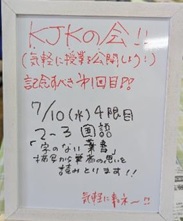 KJKの会!!
(気軽に授業を公開しよう!)
記念すべき第1回目!!
7/10(水)4限目
2-3 国語
「字のない葉書」
描写から筆者の思いを
読みとります!!
気軽に来て〜!!